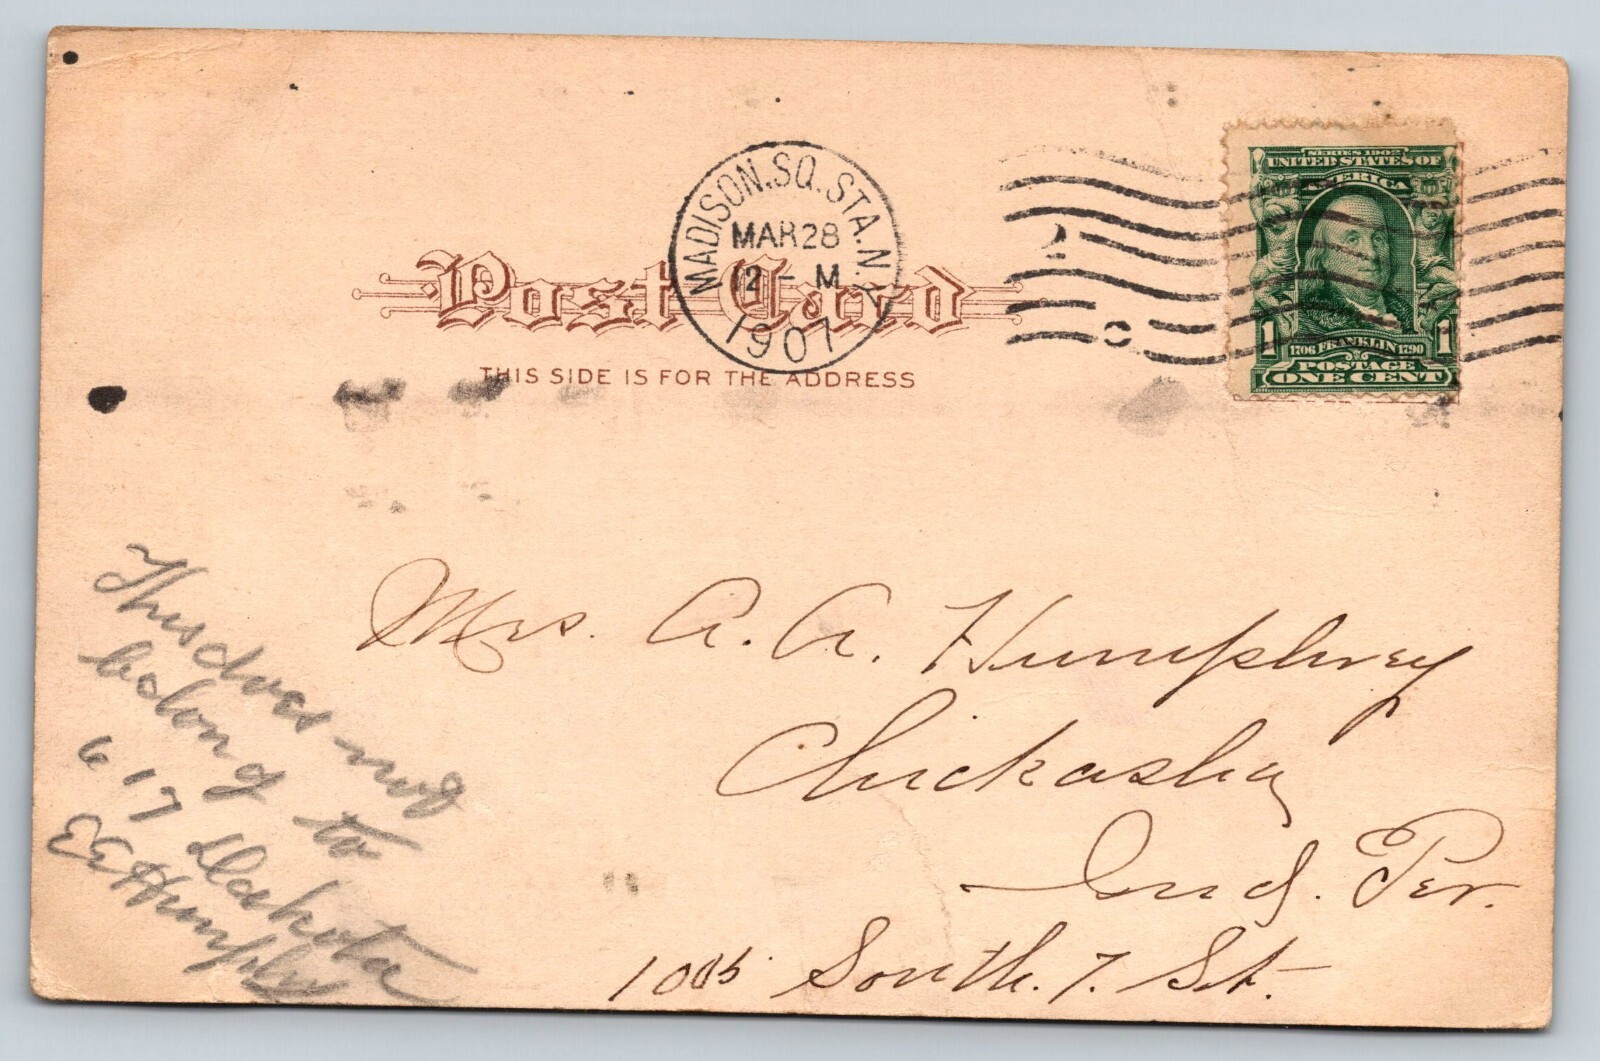 MADISON.SQ.STA.N.Y.
MAR 28
12 - M
1907
SERIES 1902
UNITED STATES OF
AMERICA
1 1
1706 FRANKLIN 1790
POSTAGE
ONE CENT
Post Card
THIS SIDE IS FOR THE ADDRESS
Mrs. A. A. Humphrey
Chickasha
Ind. Ter.
South. 7. St.
This does not
belong to
617 Dakota
E E Humphrey